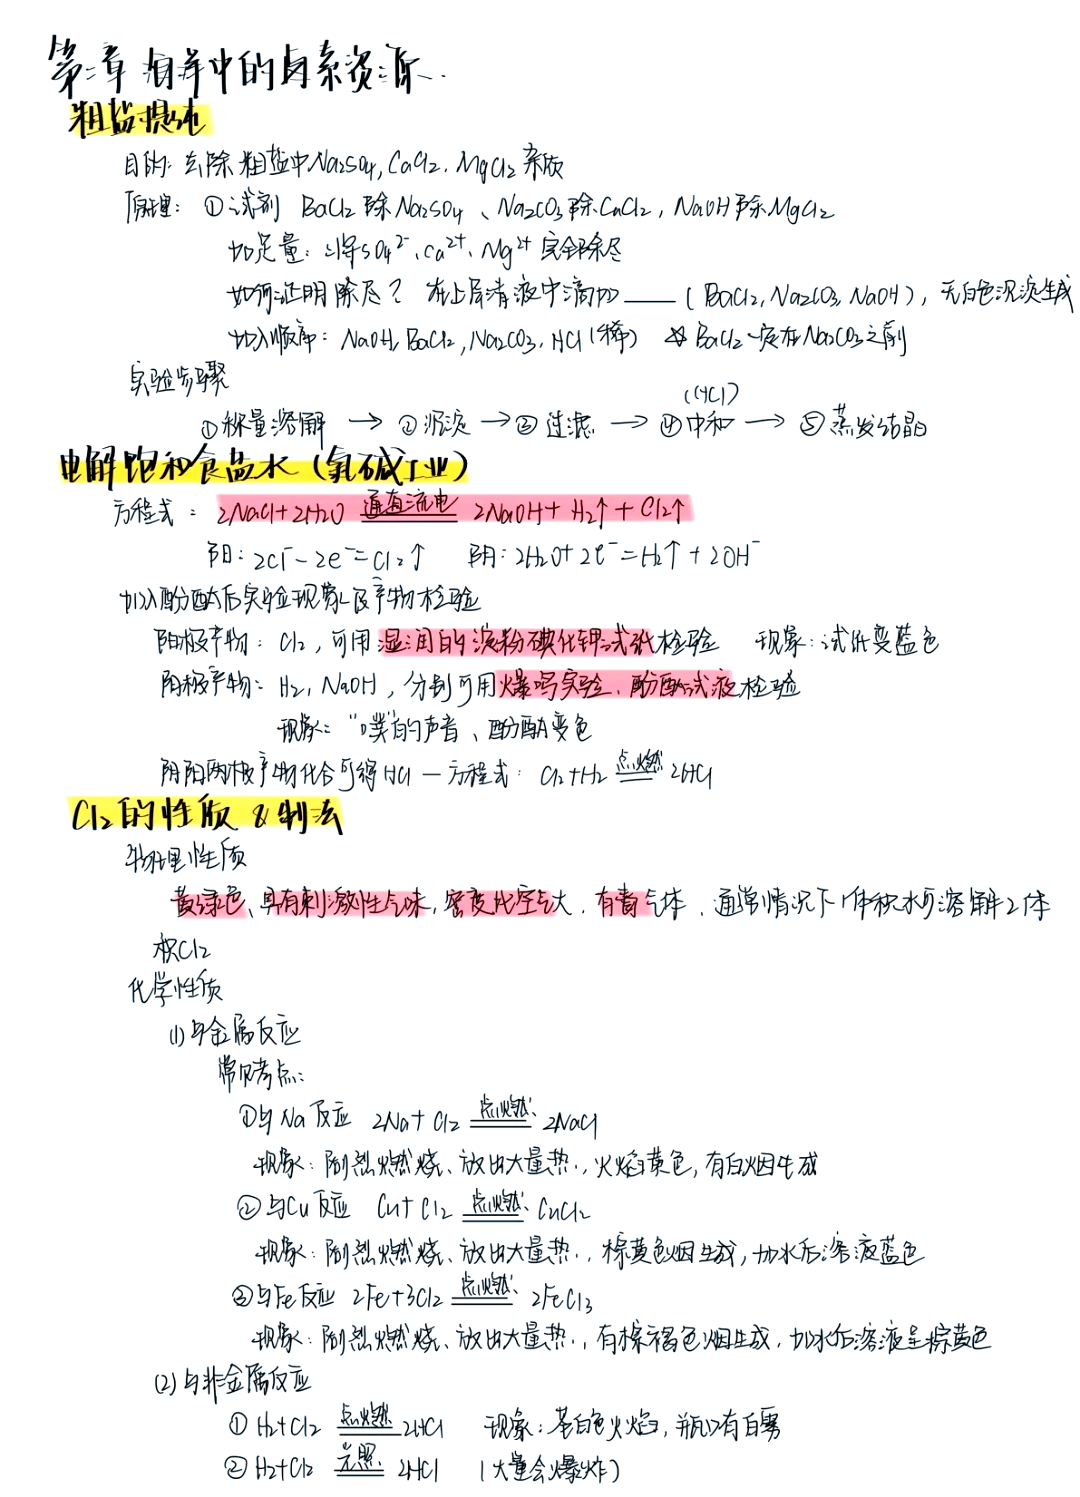 第二章 海洋中的卤素资源.
粗盐提纯
目的: 去除粗盐中Na₂SO₄, CaCl₂, MgCl₂杂质
原理: ①试剂 BaCl₂除Na₂SO₄、Na₂CO₃除CaCl₂, NaOH除MgCl₂
加足量: 将SO₄²⁻、Ca²⁺、Mg²⁺完全除尽
如何证明除尽? 在上层清液中滴加____(BaCl₂, Na₂CO₃, NaOH), 无白色沉淀生成
加入顺序: NaOH, BaCl₂, Na₂CO₃, HCl(稀) ☆BaCl₂一定在Na₂CO₃之前
实验步骤
(HCl)
①称量溶解 → ②沉淀 → ③过滤 → ④中和 → ⑤蒸发结晶
电解饱和食盐水 (氯碱工业)
方程式: 2NaCl+2H₂O 通直流电 2NaOH+H₂↑+Cl₂↑
阳: 2Cl⁻-2e⁻=Cl₂↑ 阴: 2H₂O+2e⁻=H₂↑+2OH⁻
加入酚酞后实验现象及产物检验
阳极产物: Cl₂, 可用湿润的淀粉碘化钾试纸检验 现象: 试纸变蓝色
阴极产物: H₂, NaOH, 分别可用爆鸣实验、酚酞试液检验
现象: "噗"的声音、酚酞变色
阴阳两极产物化合可得HCl — 方程式: Cl₂+H₂ 点燃 2HCl
Cl₂的性质 & 制法
物理性质
黄绿色、具有刺激性气味, 密度比空气大, 有毒气体, 通常情况下1体积水可溶解2体
积Cl₂
化学性质
(1)与金属反应
常见考点:
①与Na反应 2Na+Cl₂ 点燃 2NaCl
现象: 剧烈燃烧、放出大量热, 火焰黄色, 有白烟生成
②与Cu反应 Cu+Cl₂ 点燃 CuCl₂
现象: 剧烈燃烧、放出大量热, 棕黄色烟生成, 加水后溶液蓝色
③与Fe反应 2Fe+3Cl₂ 点燃 2FeCl₃
现象: 剧烈燃烧、放出大量热, 有棕褐色烟生成, 加水后溶液呈棕黄色
(2)与非金属反应
①H₂+Cl₂ 点燃 2HCl 现象: 苍白色火焰, 瓶口有白雾
②H₂+Cl₂ 光照 2HCl (大量会爆炸)